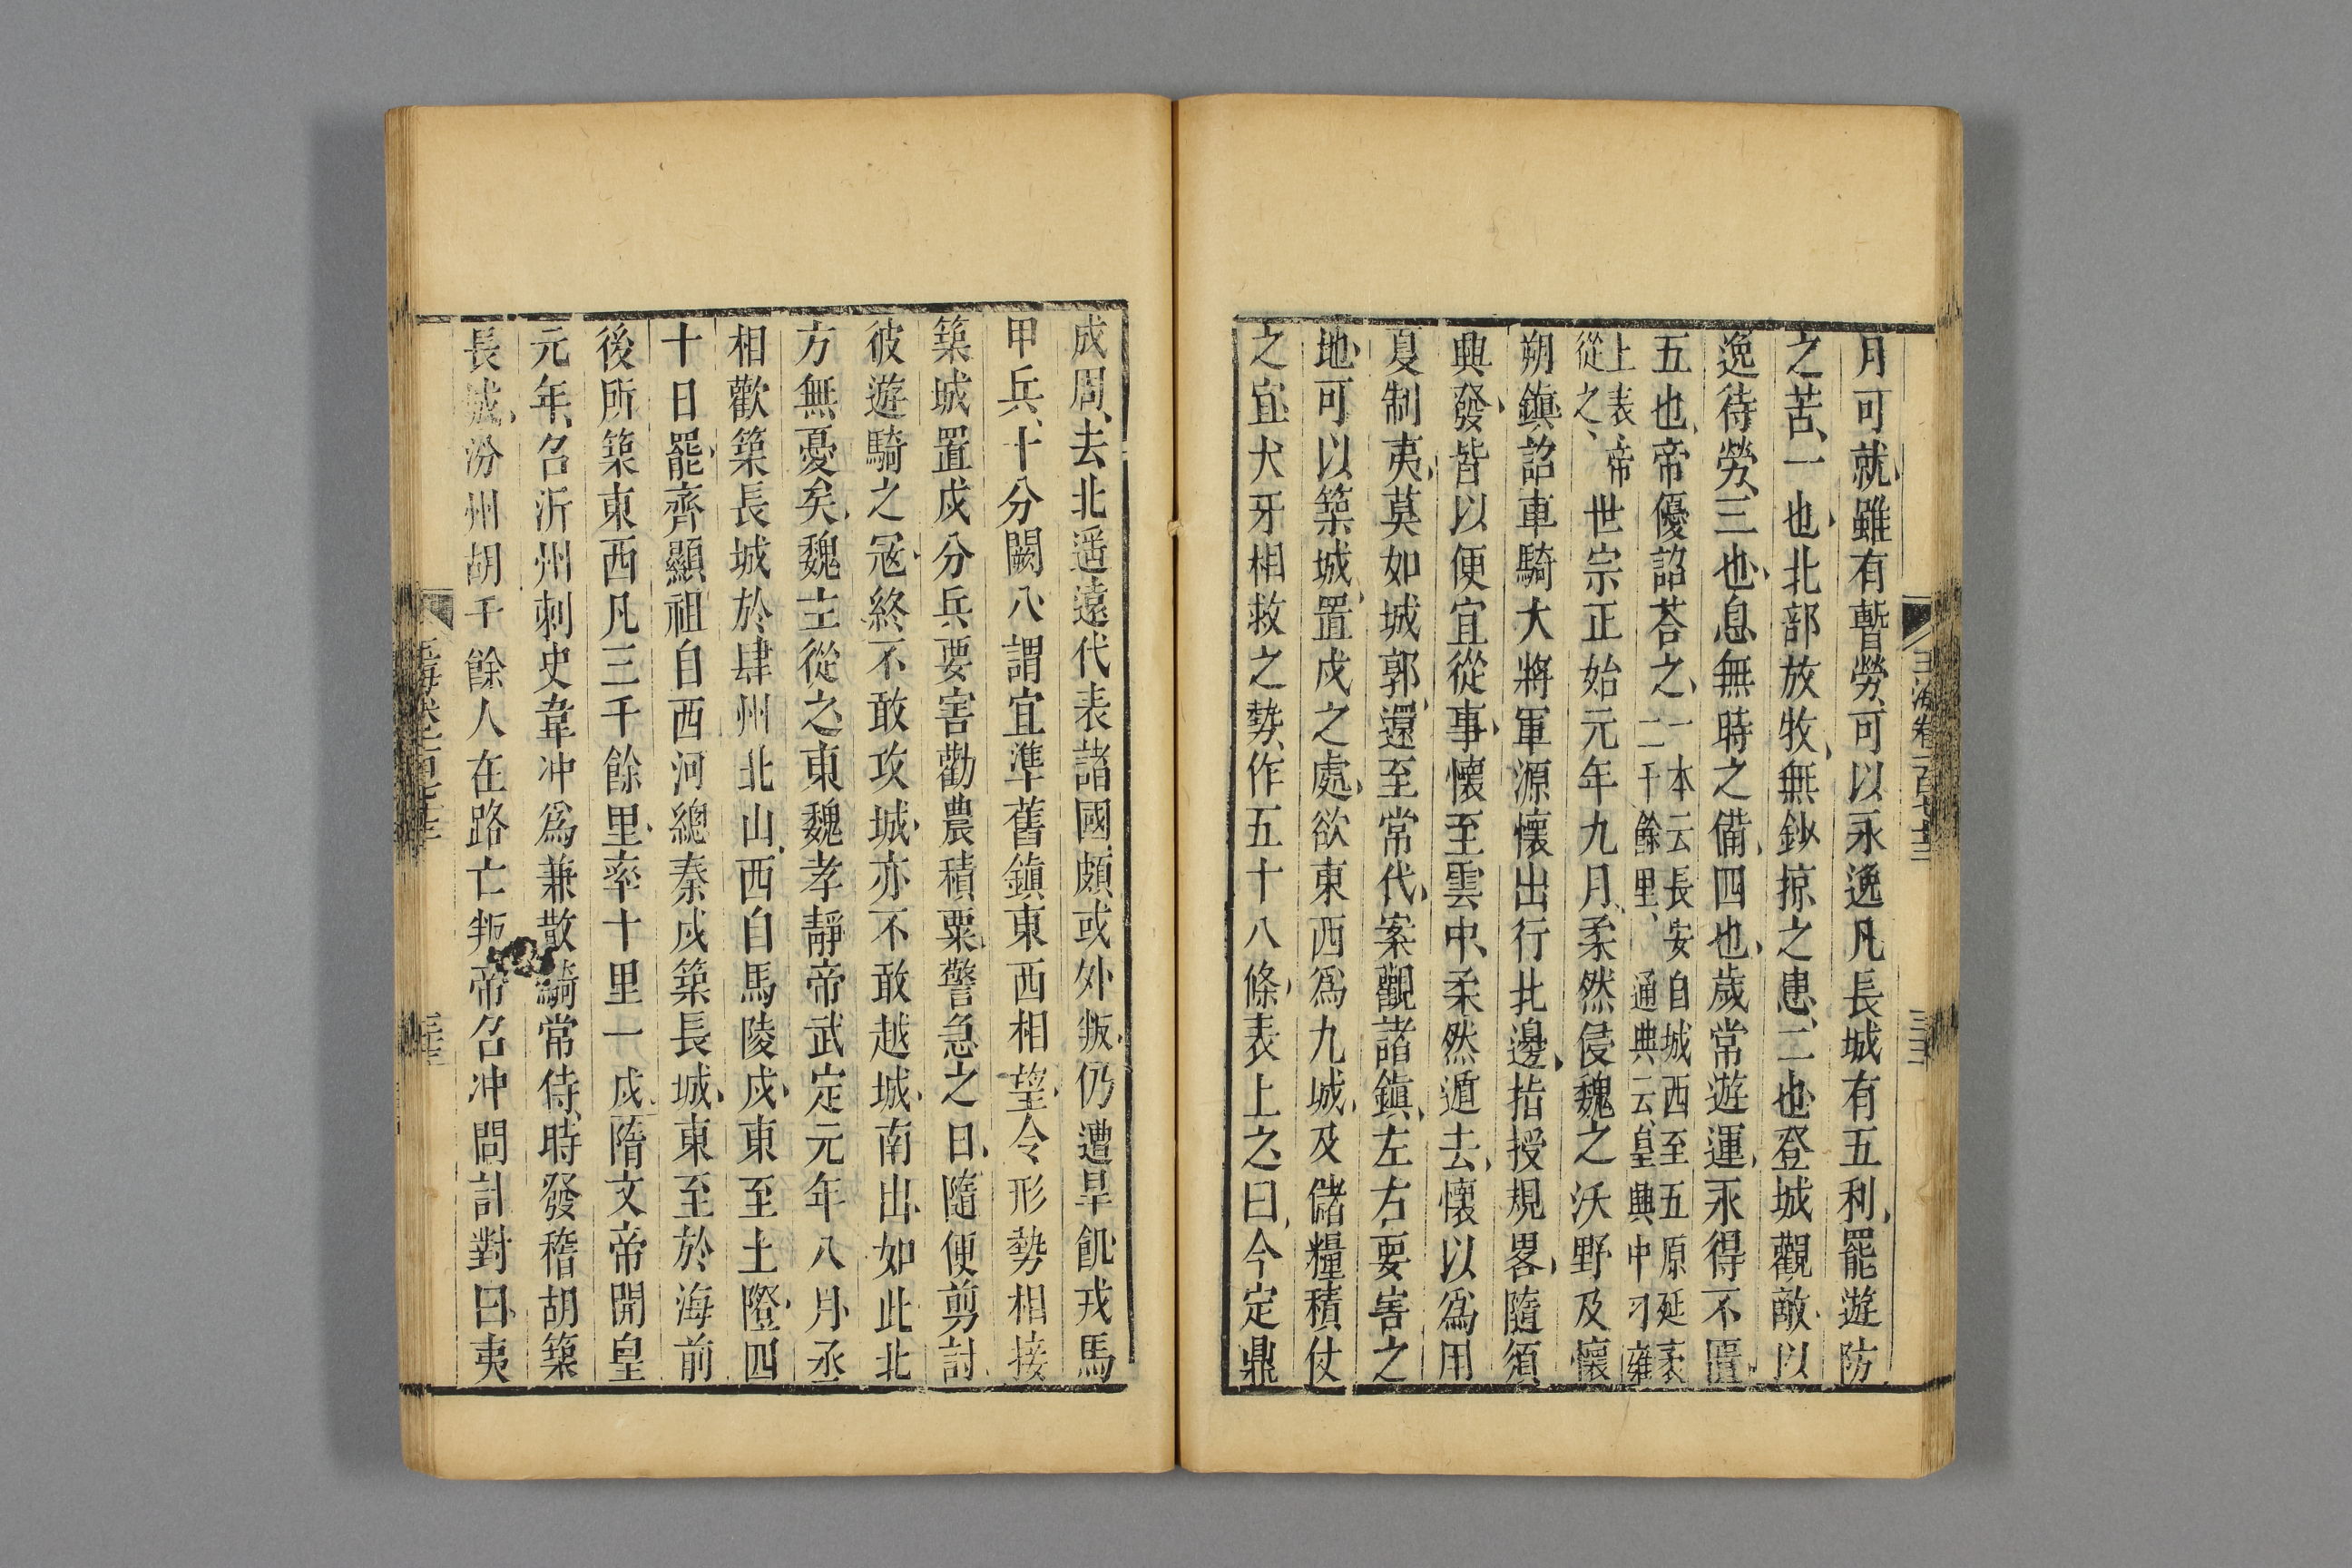 月可就雖有暫勞可以永逸凡長城有五利罷遊防
之苦一也北部放牧無鈔掠之患二也登城觀敵以
逸待勞三也息無時之備四也歲常遊運永得不匱
五也帝優詔荅之一本云長安自城西至五原延袤
二千餘里通典云皇興中刁雍
上表帝
從之世宗正始元年九月柔然侵魏之沃野及懷
朔鎮詔車騎大將軍源懷出行北邊指授規畧隨須
興發皆以便宜從事懷至雲中柔然遁去懷以為用
夏制夷莫如城郭還至常代案觀諸鎮左右要害之
地可以築城置戍之處欲東西為九城及儲糧積仗
之宜犬牙相救之勢作五十八條表上之曰今定鼎
成周去北遥遠代表諸國頗或外叛仍遭旱飢戎馬
甲兵十分闕八謂宜準舊鎮東西相望令形勢相接
築城置戍分兵要害勸農積粟警急之日隨便剪討
彼遊騎之寇終不敢攻城亦不敢越城南出如此北
方無憂矣魏主從之東魏孝靜帝武定元年八月丞
相歡築長城於肆州北山西自馬陵戍東至土隥四
十日罷齊顯祖自西河總秦戍築長城東至於海前
後所築東西凡三千餘里率十里一戍隋文帝開皇
元年召沂州刺史韋冲為兼散騎常侍時發稽胡築
長城汾州胡千餘人在路亡叛帝召冲問計對曰夷
玉海卷一百七十三